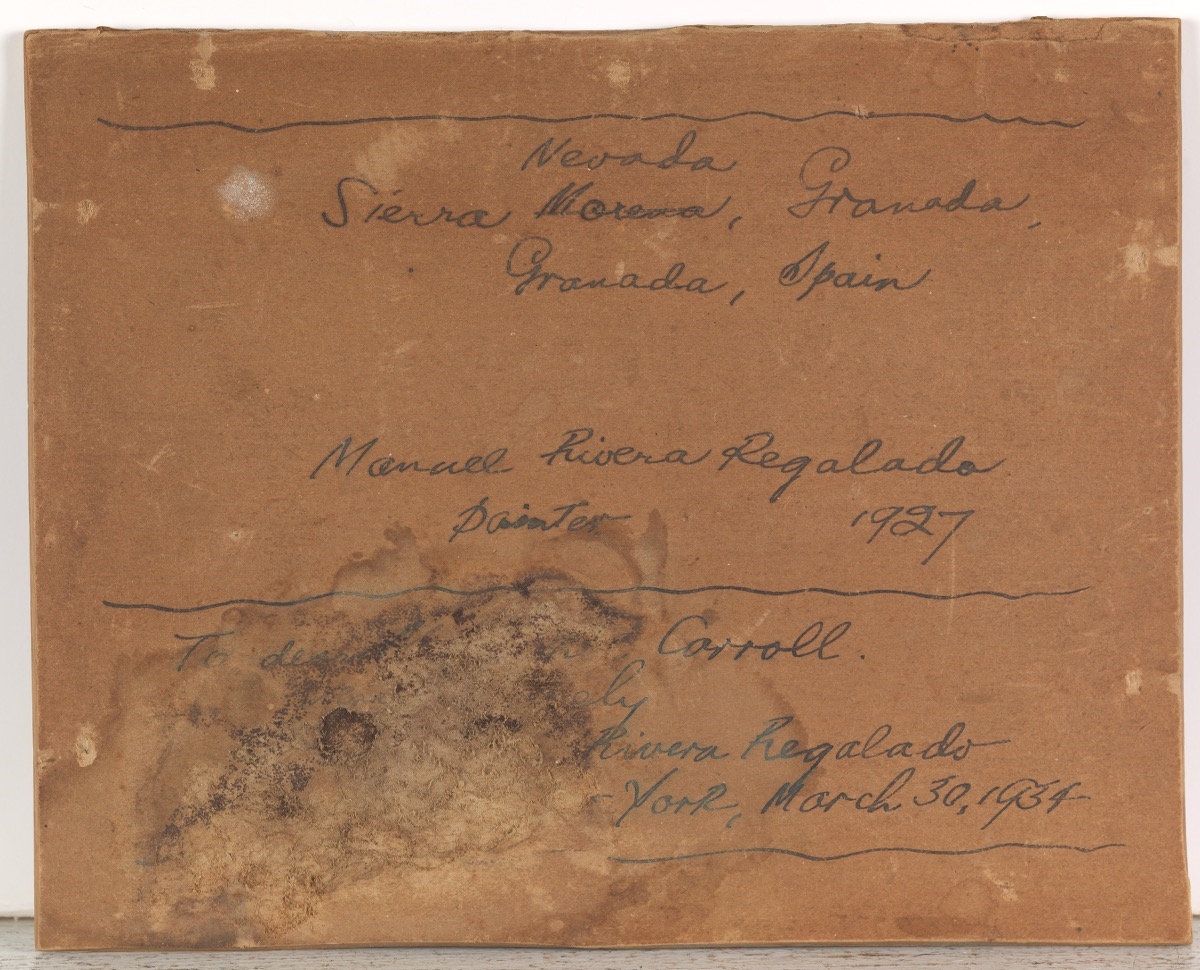 Nevada
Sierra Morena, Granada,
Granada, Spain
Manuel Rivera Regalado
Painter 1927
To Carroll.
Rivera Regalado
York, March 30, 1934